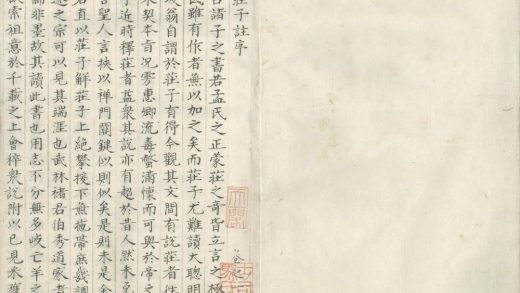 莊子註序
諸子之書若孟氏之正蒙莊之奇皆立言之極
民雖有作者無以加之矣而莊子尤難讀大聰明
翁自謂於莊子有得今觀其文間有說莊者往
未契本肯况雱惠卿流毒螫滿懷而可與於帝之
于近時釋莊者益衆其說亦有超於昔人然未免
言聖人言挾以禅門關鍵似則似矣是則未是余
若直以莊子解莊子上絶攀援下無拖帶庶幾調
述之宗可以見其端涯也武林褚君伯秀道家者
非墨故其讀此書也用志不分無多岐亡羊之
欲索祖意於千載之上會稡衆說附以己見